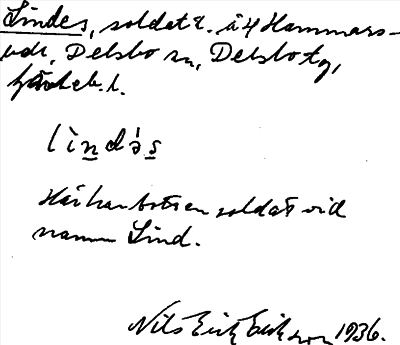 Lindes, soldatt. å 4 Hammars-
udr, Delsbo sn, Delsbo tg,
Gävleb. l.
lìndə́s
Här har bott en soldat vid
namn Lind.
Nils Erik Erikson 1936.